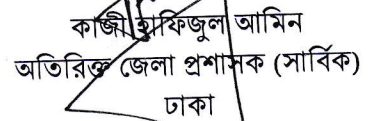 কাজী হাফিজুল আমিন
অতিরিক্ত জেলা প্রশাসক (সার্বিক)
ঢাকা